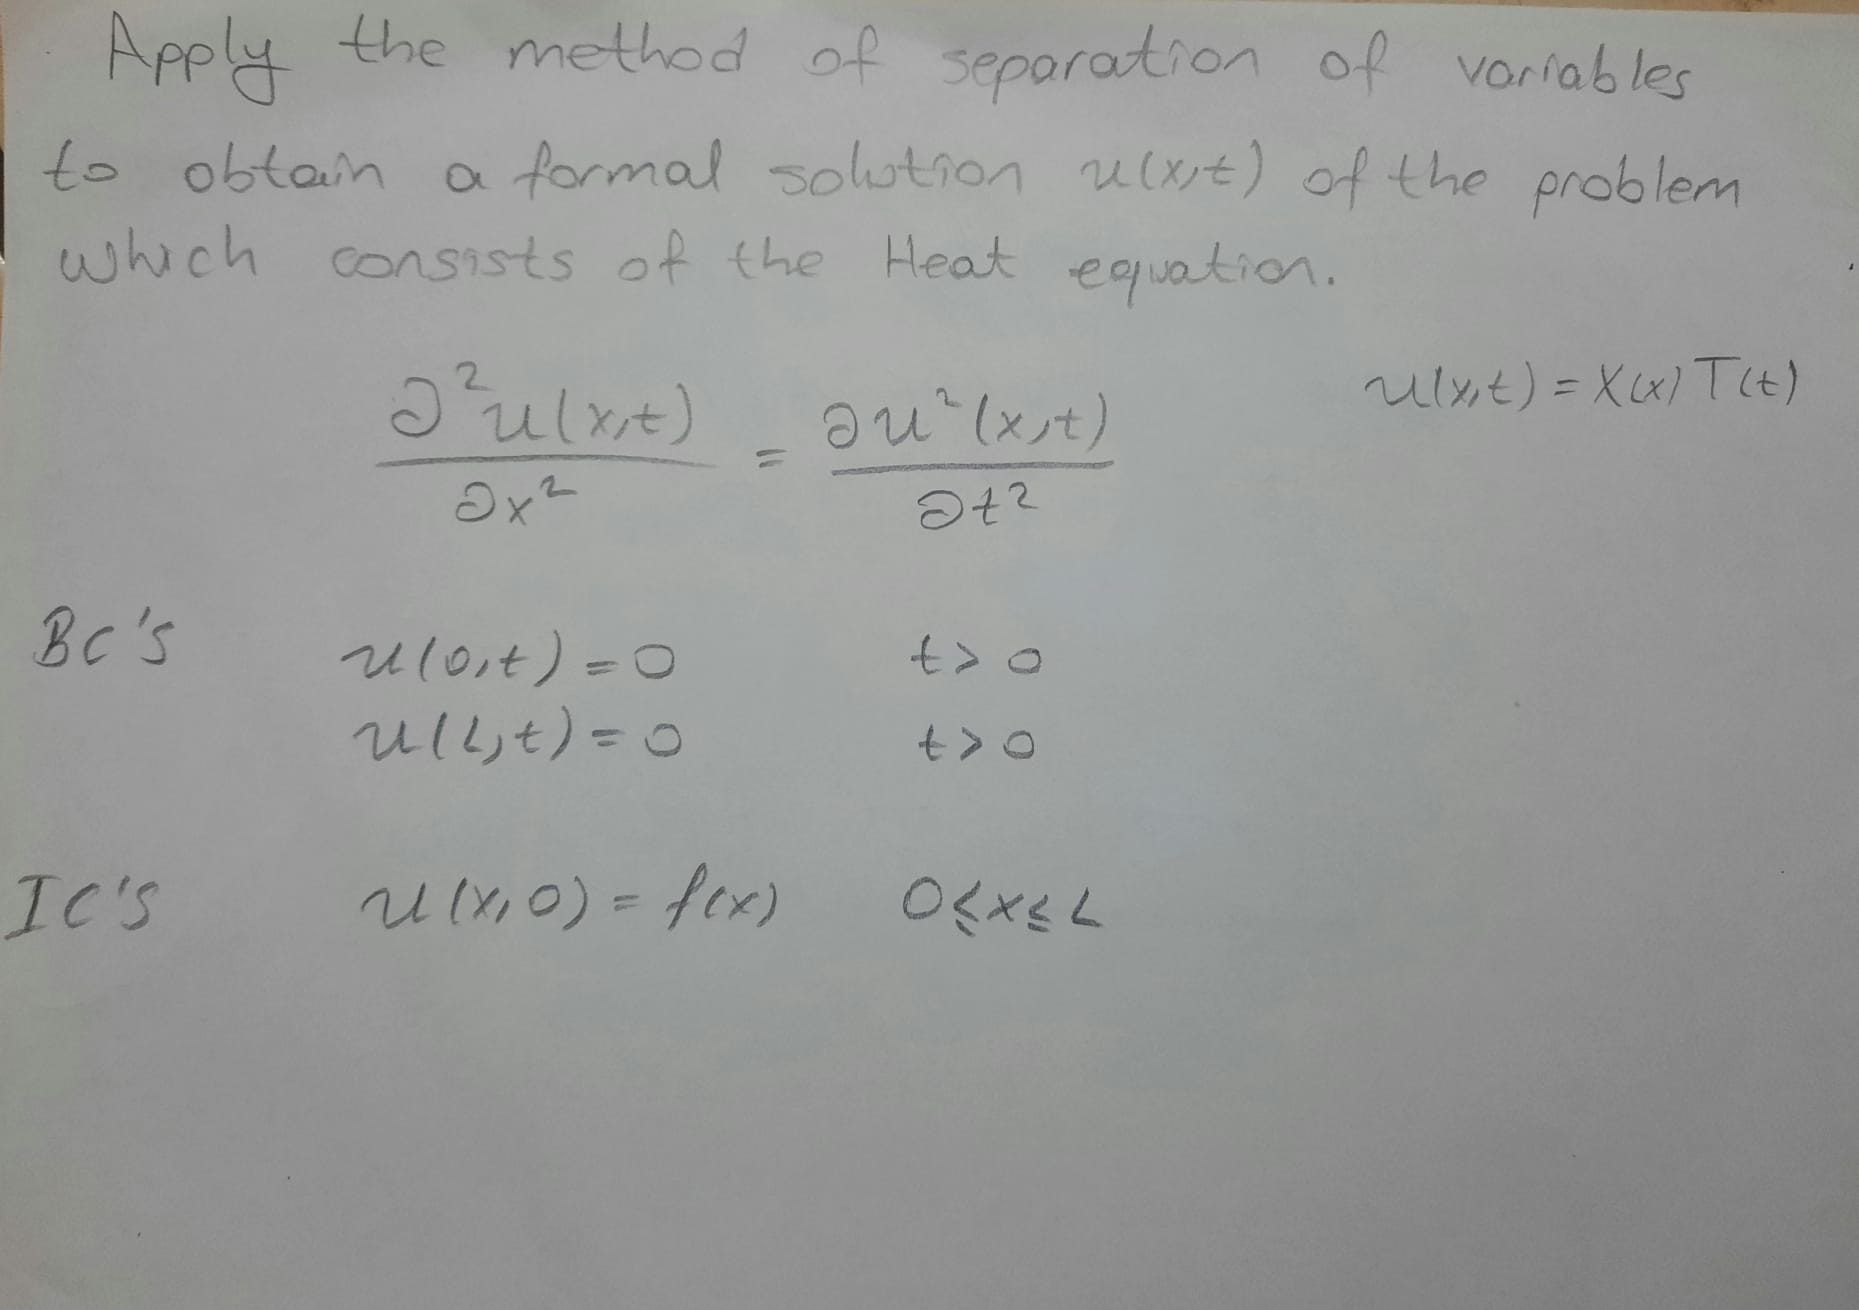 Apply the method of separation of variables
to obtain a formal solution u(x,t) of the problem
which consists of the Heat equation.
∂²u(x,t)/∂x² = ∂u²(x,t)/∂t² u(x,t) = X(x) T(t)
BC's u(0,t) = 0 t > 0
u(L,t) = 0 t > 0
IC's u(x,0) = f(x) 0 ≤ x ≤ L